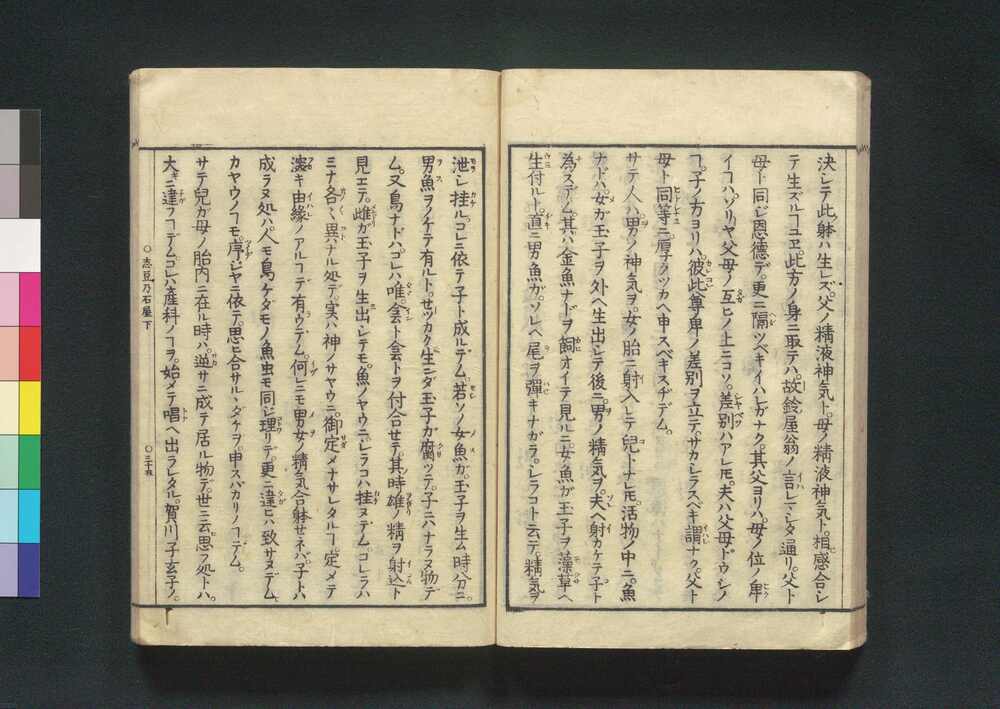 決シテ此躰ハ生レズ。父ノ精液神気ト。母ノ精液神気ト。相感合シ
テ生ズルヿユヱ。此方ノ身ニ取テハ。故鈴屋翁ノ言レマシタ通リ。父ト
母ト同ジ恩徳デ。更ニ隔ツベキイハレガナク。其父ヨリハ。母ノ位ノ卑
イヿハゾリヤ父母ノ互ヒノ上ニコソ。差別ハアレ𪜈。夫ハ父母ドウシノ
ヿ。子ノ方ヨリハ。彼此尊卑ノ差別ヲ立テ。サカシラスベキ謂ナク。父ト
母ト同等ニ。厚クツカヘ申スベキスヂデム。
サテ人ハ男ノ神気ヲ。女ノ胎ニ射入レテ兒トナレ𪜈。活物ノ中ニ。魚
ナドハ。女ガ玉子ヲ外ヘ生出シテ後ニ。男ノ精気ヲ。夫ヘ射カケテ子ト
為スデム。其ハ金魚ナドヲ飼オイテ見ルニ。女魚ガ玉子ヲ藻草ヘ
生付ルト。直ニ男魚ガ。ソレヘ尾ヲ彈キナガラ。シラコト云テ。精気ヲ
泄シ挂ル。コレニ依テ子ト成ルデム。若ソノ女魚ガ。玉子ヲ生ム時分ニ。
男魚ヲノケテ有ルト。セツカク生ンダ玉子ガ腐ツテ。子ニハナラヌ物デ
ム。又鳥ナドハ。コレハ唯会ト会トヲ付合セテ。其時雄ノ精ヲ射込ト
見エテ。雌ガ玉子ヲ生出シテモ。魚ノヤウニ。シラコハ挂ヌデム。コレラハ
ミナ各々異ナル処デ。実ハ神ノサヤウニ。御定メナサレタルヿ。定メテ
深キ由縁ノアルヿデ有ウデム。何レニモ男女ノ精気合躰セネバ。子トハ
成ラヌ処ハ。人モ鳥ケダモノ魚虫モ同ジ理リデ。更ニ違ヒハ致サヌデム。
カヤウノヿモ。序ジヤニ依テ。思ヒ合サルヽダケヲ。申スバカリノヿデム。
サテ兒ガ母ノ胎内ニ在ル時ハ。逆サニ成テ居ル物デ。世ニ云思フ処トハ。
大キニ違フヿデム。コレハ産科ノヿヲ。始メテ唱ヘ出ラレタル。賀川子玄子ノ。
○志豆乃石屋下